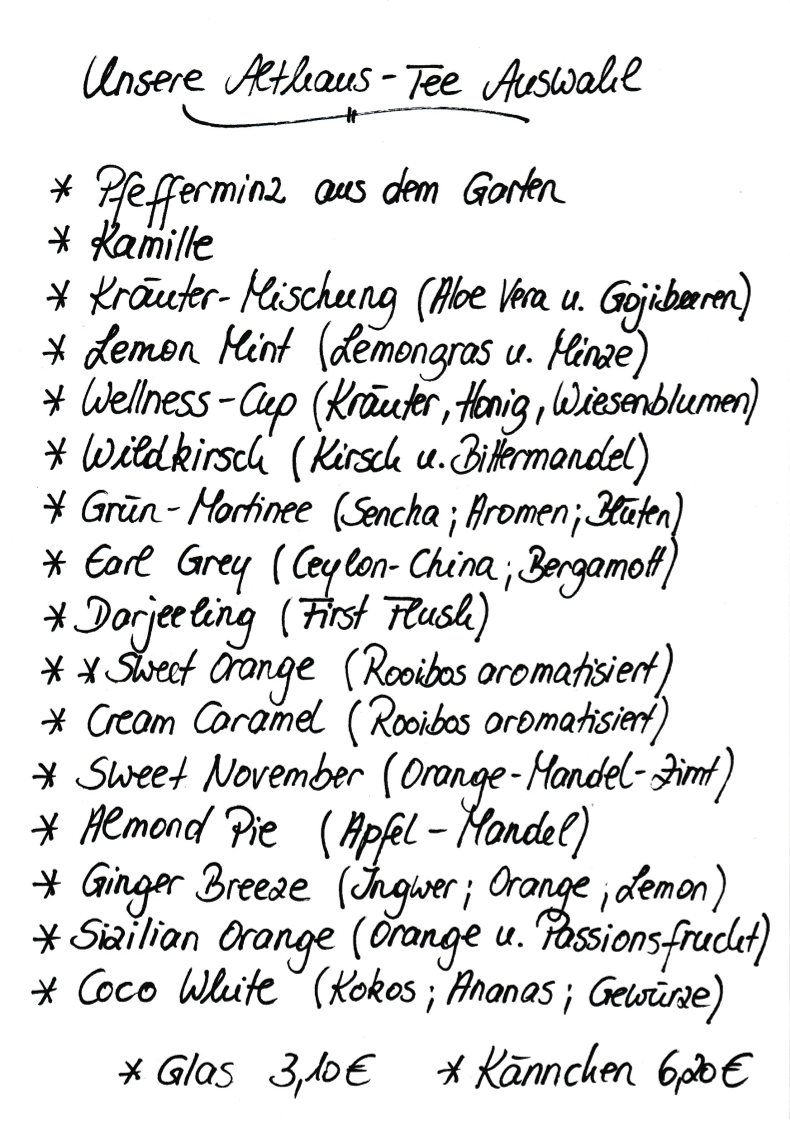 Unsere Althaus-Tee Auswahl
* Pfefferminz aus dem Garten
* Kamille
* Kräuter-Mischung (Aloe Vera u. Gojibeeren)
* Lemon Mint (Lemongras u. Minze)
* Wellness-Cup (Kräuter, Honig, Wiesenblumen)
* Wildkirsch (Kirsch u. Bittermandel)
* Grün-Martinee (Sencha; Aromen; Blüten)
* Earl Grey (Ceylon-China; Bergamott)
* Darjeeling (First Flush)
* * Sweet Orange (Rooibos aromatisiert)
* Cream Caramel (Rooibos aromatisiert)
* Sweet November (Orange-Mandel-Zimt)
* Almond Pie (Apfel-Mandel)
* Ginger Breeze (Ingwer; Orange; Lemon)
* Sizilian Orange (Orange u. Passionsfrucht)
* Coco White (Kokos; Ananas; Gewürze)
* Glas 3,10€ * Kännchen 6,20€